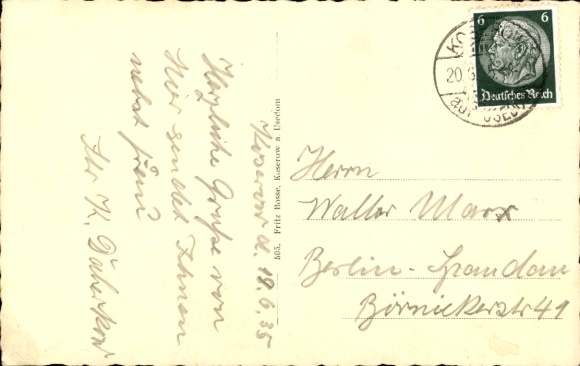 Koserow d. 19.6.35
Herzliche Grüße von
hier sendet Ihnen
nebst Frau
Ihr K.
505. Fritz Bosse, Koserow a. Usedom
6 6
Deutsches Reich
KOSEROW
20.6
auf USEDOM
Herrn
Walter Marx
Berlin-Spandau
Börnickerstr 41